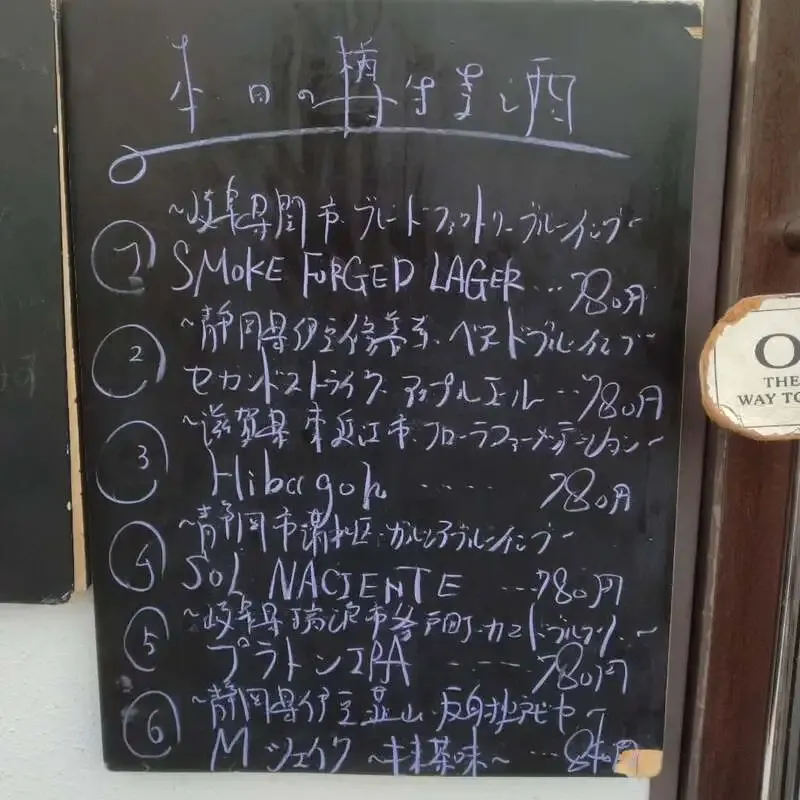 本日の樽生生酒
① ~岐阜県関市・ブレードファクトリーブルーイング~
SMOKE FORGED LAGER ... 780円
② ~静岡県伊豆修善寺・ベアードブルーイング~
セカンドストライク アップルエール ... 780円
③ ~滋賀県東近江市・フローラファーメンテーション~
Hibagon ..... 780円
④ ~静岡市葵区・ガルシアブルーイング~
SOL NACIENTE ... 780円
⑤ ~岐阜県瑞浪市釜戸町・カマドブルワリー~
プラトンIPA ..... 780円
⑥ ~静岡県伊豆韮山・反射炉ビヤ~
Mシェイク ~抹茶味~ ...
O
THE
WAY TO